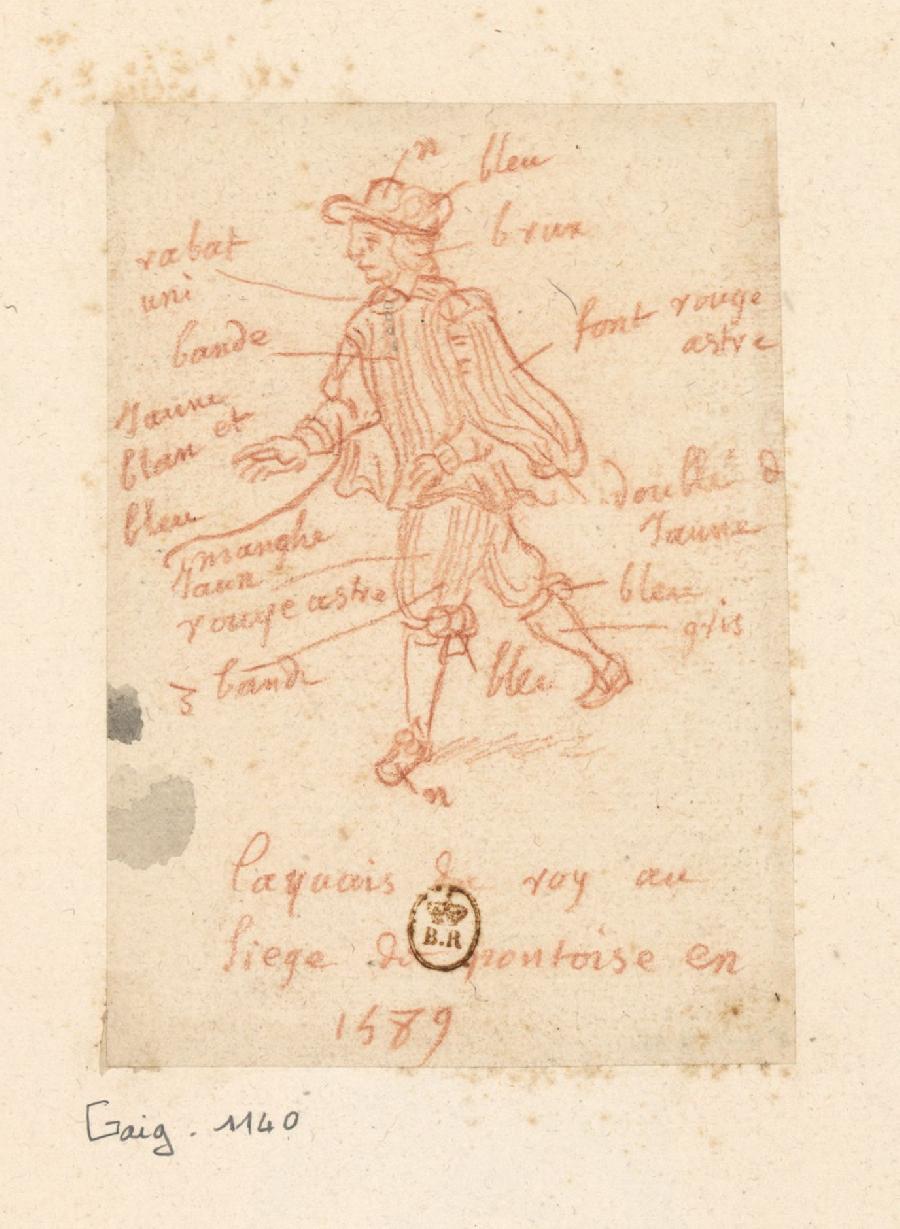 n
bleu
brun
rabat
uni
font rouge
astre
bande
Jaune
blan et
bleu
doublé d
Jaune
manghe
Jaun
rouge astre
bleu
gris
3 bande
bleu
n
laquais du roy au
siege de pontoise en
1589
B.R
Gaig. 1140